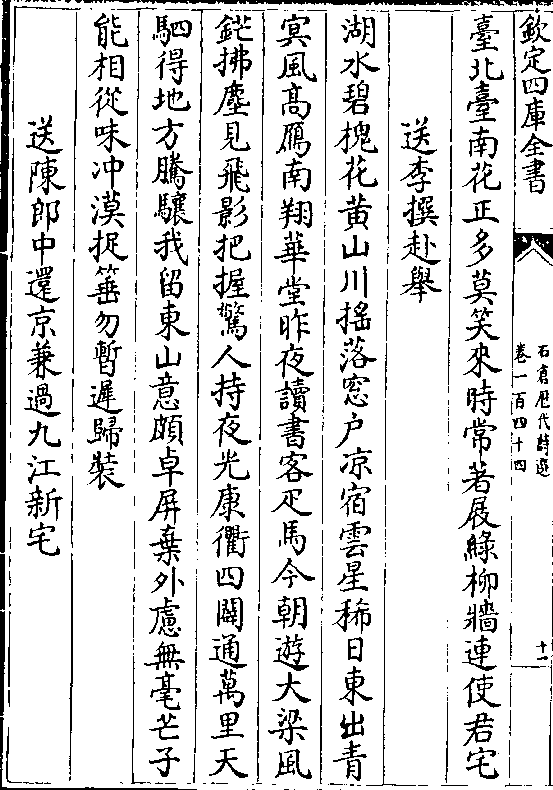 欽定四庫全書
石倉歷代詩選
卷一百四十四
十一
臺北臺南花正多莫笑來時常著屐綠柳牆連使君宅
送李撰赴舉
湖水碧槐花黄山川揺落窓户凉宿雲星稀日東出青
㝠風髙鴈南翔華堂昨夜讀書客疋馬今朝遊大梁風
鋩拂塵見飛影把握驚人持夜光康衢四闢通萬里天
駟得地方騰驤我留東山意頗卓屏棄外慮無毫芒子
能相從味冲漠捉箠勿暫遲歸裝
送陳郎中還京兼過九江新宅